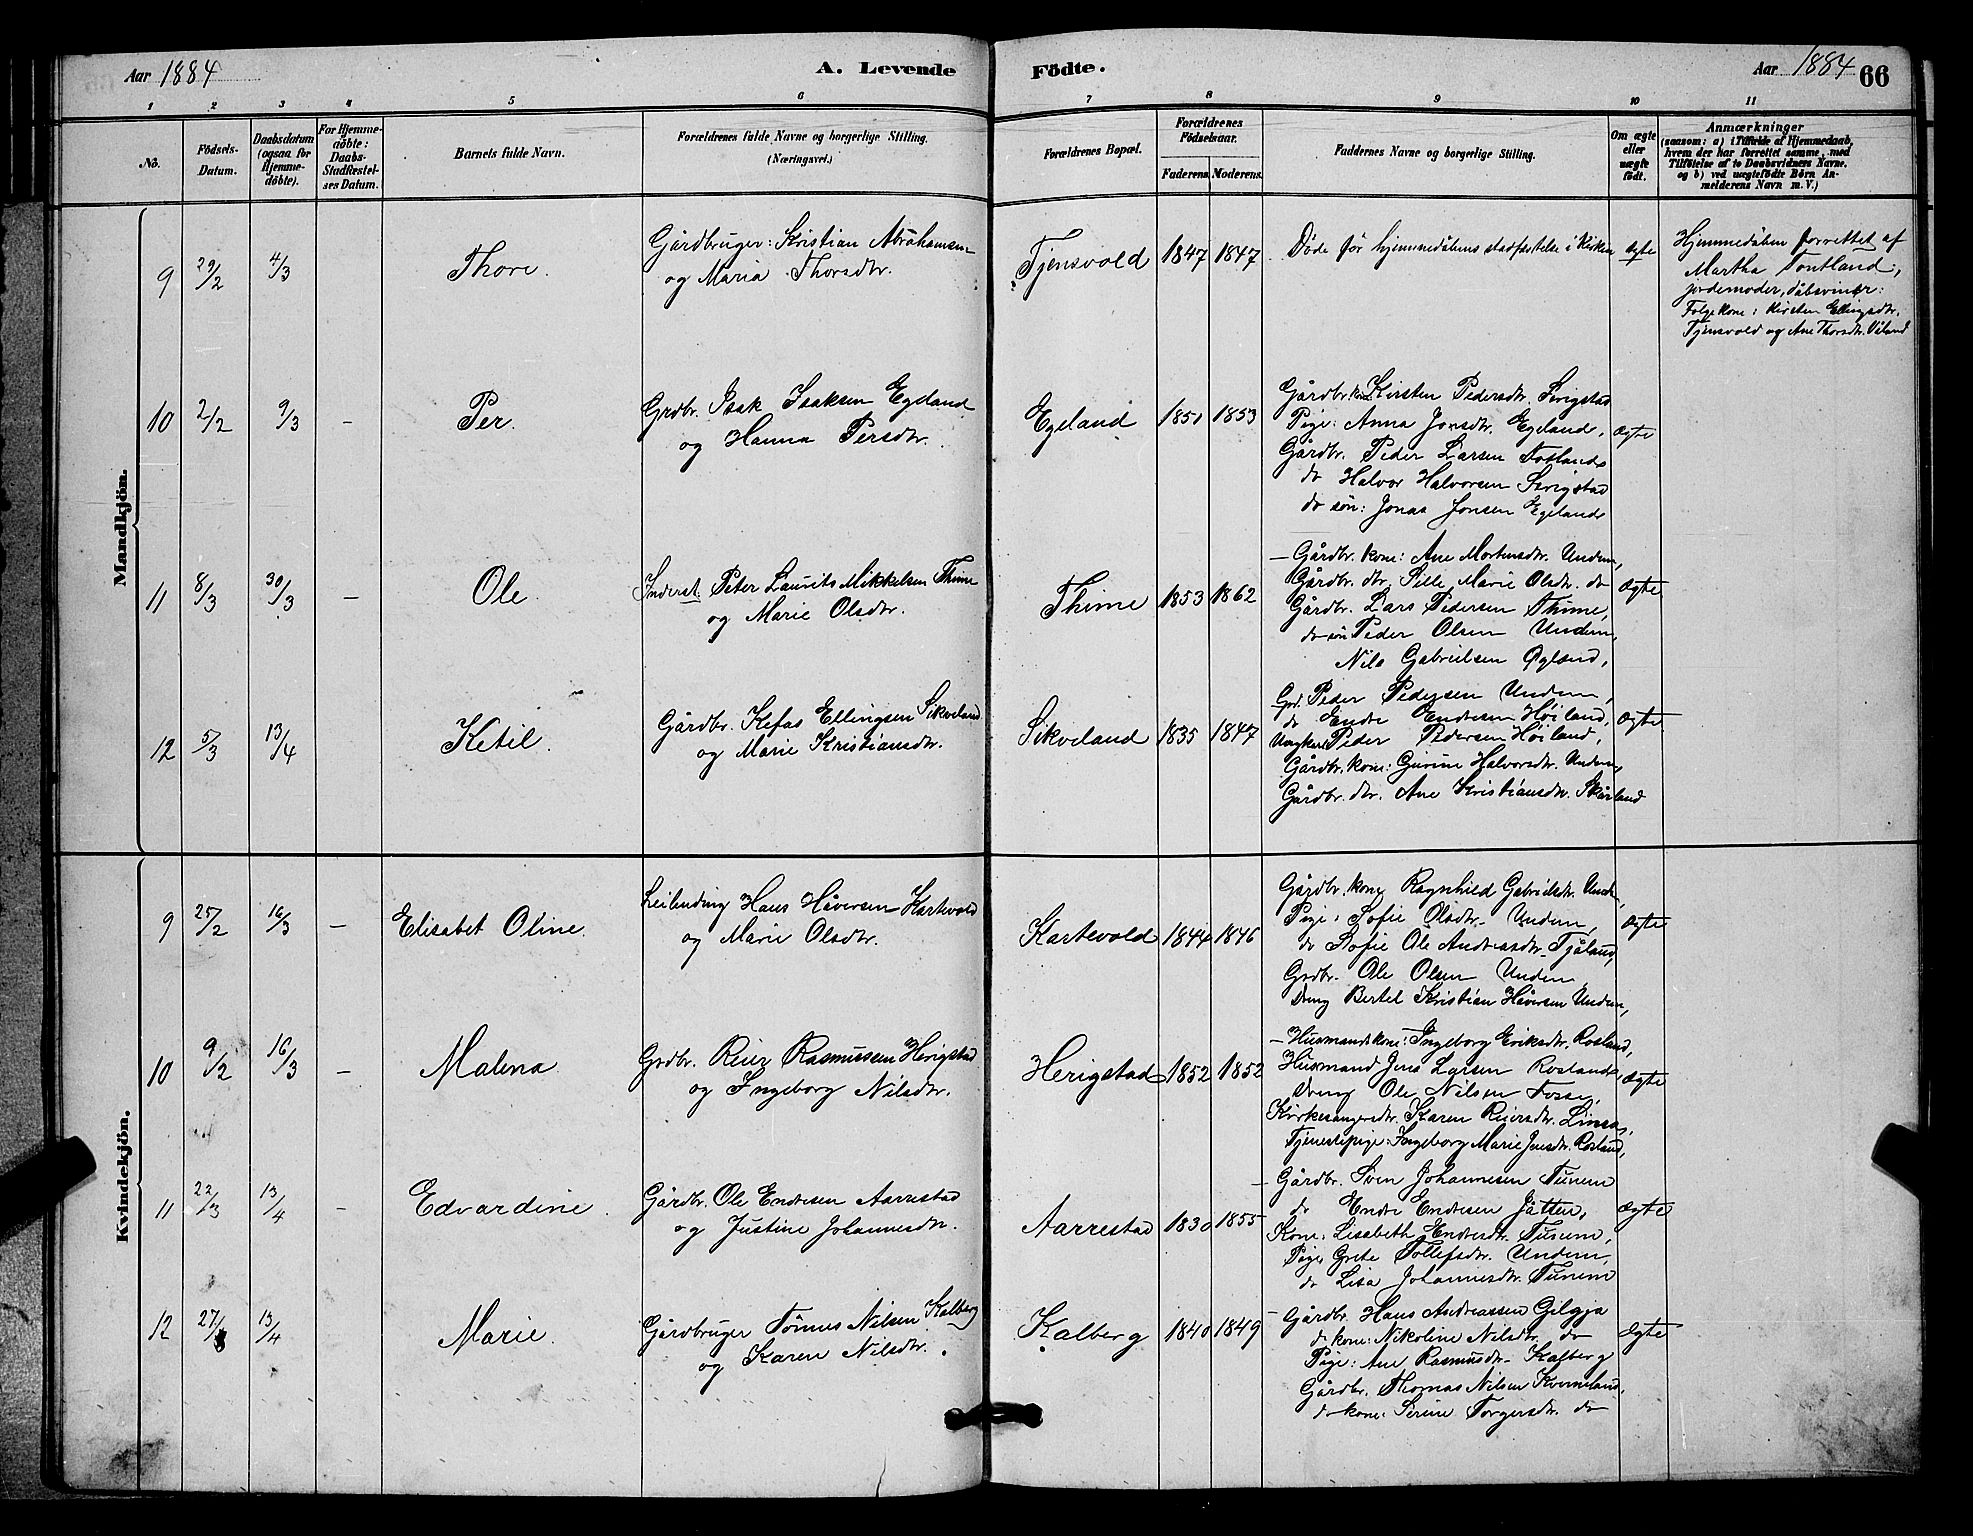 Aar 1884
A. Levende
Födte.
Aar 1884
66
1 2 3 4 5 6 7 8 9 10 11
No.
Födsels-
Datum.
Daabsdatum
(ogsaa for
Hjemme-
döbte).
For Hjemme-
döbte:
Daabs-
Stadfæstel-
ses Datum.
Barnets fulde Navn.
Forældrenes fulde Navne og borgerlige Stilling.
(Næringsvei.)
Forældrenes Bopæl.
Forældrenes
Födselsaar.
Faderens. Moderens.
Faddernes Navne og borgerlige Stilling.
Om ægte
eller
uægte
födt.
Anmærkninger
(saasom: a) i Tilfælde af Hjemmedaab,
hvem der har forrettet samme, med
Tilföielse af to Daabsvidners Navne.
og b) ved uægtefödte Börn An-
melderens Navn m. V.)
Mandkjön.
9 29/2 4/3
Thore.
Gårdbruger: Kristian Abrahamsen
og Maria Thorsdtr.
Tjensvold 1847 1847
Døde før hjemmedåbens stadfæstelse i Kirken
ægte
Hjemmedåben forrettet af
Martha Tontland,
jordemoder, dåbsvinør:
Folgekone: Kirsten Ellingsdtr.
Tjensvold og Ane Thorsdtr.
10 2/2 9/3 -
Per.
Grdbr. Isak Isaksen Egeland
og Hanna Persdtr.
Egeland 1850 1853
Gårdbr. kone Kirsten Pedersdtr. Serigstad
Pige: Anna Jonsdtr. Egeland,
Gårdbr. Peder Larsen Fotland
do Halvor Halvorsen Serigstad
do søn: Jonas Jonsen Egeland
ægte
11 8/3 30/3 -
Ole.
Inderst. Peter Laurits Mikkelsen Thime
og Marie Olsdtr.
Thime 1853 1862
- Gårdbr. kone: Ane Mortensdtr. Undem,
Gårdbr. dtr. Sille Marie Olsdtr. do
Gårdbr. Lars Pedersen Thime,
do søn Peder Olsen Undem,
Nils Gabrielsen Øgland,
ægte
12 5/3 13/4
Ketil.
Gårdbr. Kefas Ellingsen Sikveland
og Marie Kristiansdtr.
Sikveland 1835 1847
Grd. Peder Pedersen Undem,
do Endre Endresen Høiland,
Ungkarl Peder Pedersen Høiland,
Gårdbr. kone: Gurine Halvorsdtr. Undem,
Gårdbr. dtr. Ane Kristiansdtr. Skårland
ægte
Kvindekjön.
9 25/2 16/3 -
Elisabet Oline.
Leilending Hans Håversen Kartevold
og Marie Olsdtr.
Kartevold 1844 1846
Gårdbr. kone Ragnhild Gabrielsdtr. Undem,
Pige: Sofie Olsdtr. Undem,
do Sofie Ole Andreasdtr. Tjåland,
Grdbr. Ole Olsen Undem
Dreng Bertel Kristian Håversen Undem,
ægte
10 9/2 16/3 -
Malena
Grdbr. Reier Rasmussen Herigstad
og Ingeborg Nilsdtr.
Herigstad 1852 1852
- Husmandskone: Ingeborg Eriksdtr. Rosland,
Husmand Jens Larsen Rosland,
Dreng Ole Nilsen Fosse,
Kirkesangersdtr. Karen Reiersdtr. Linea,
Tjenestepige: Ingeborg Marie Jensdtr. Rosland,
ægte
11 22/3 13/4 -
Edvardine.
Gårdbr. Ole Endresen Aarrestad
og Justine Johannesdtr.
Aarrestad 1830 1855
- Gårdbr. Sven Johannesen Tunem
do Endre Endresen Jåtten,
Kone: Lisabeth Endresdtr. Tunem,
Pige Grete Tollefsdtr. Undem,
do Lisa Johannesdtr. Tunem
ægte
12 27/3 13/4
Marie.
Gårdbruger Tønnes Nilsen Kalberg
og Karen Nilsdtr.
Kalberg 1840 1849
- Gårdbr. Hans Andreassen Gilgja
do kone: Nikoline Nilsdtr. do
Pige: Ane Rasmusdtr. Kalberg
Gårdbr. Thomas Nilsen Kverneland,
do kone: Serine Torgersdtr. do
ægte